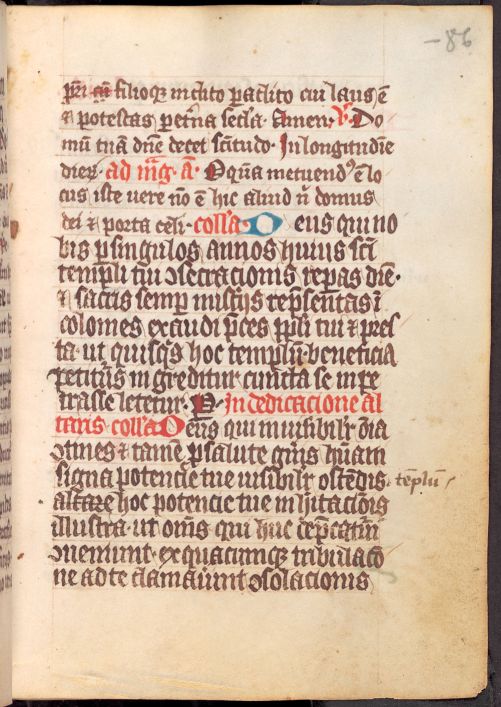 -86
pri cū filioqȝ inclito paclito cui laus ē
⁊ potestas petna secla. Amen. V. Do
mū tuā dne decet sctitudo. In longitudine
dierȝ. ad mg. a. O qua metuendꝰ e lo
cus iste vere nō ē hic aliud ni domus
dei ⁊ porta celi. colla. Deus qui no
bis p singulos annos huius sci
templi tui ↄsecracionis repas die.
⁊ sacris semp misterijs repsentas i
colomes exaudi pces ppli tui ⁊ pres
ta. ut quisqs hoc templū. beneficia
petiturus ingreditur cuncta se inpe
trasse letetur. P. In dedicacione al
taris. colla. Deus qui invisibilr oia
ↄtines ⁊ tame p salute gnis humani
signa potencie tue visibilr ostendis. templū
altare hoc potencie tue inhitacionis
illustra. ut oms qui huc depcaturi
ↄveniunt. ex quacumqȝ tribulaco
ne ad te clamaverint ↄsolacionis